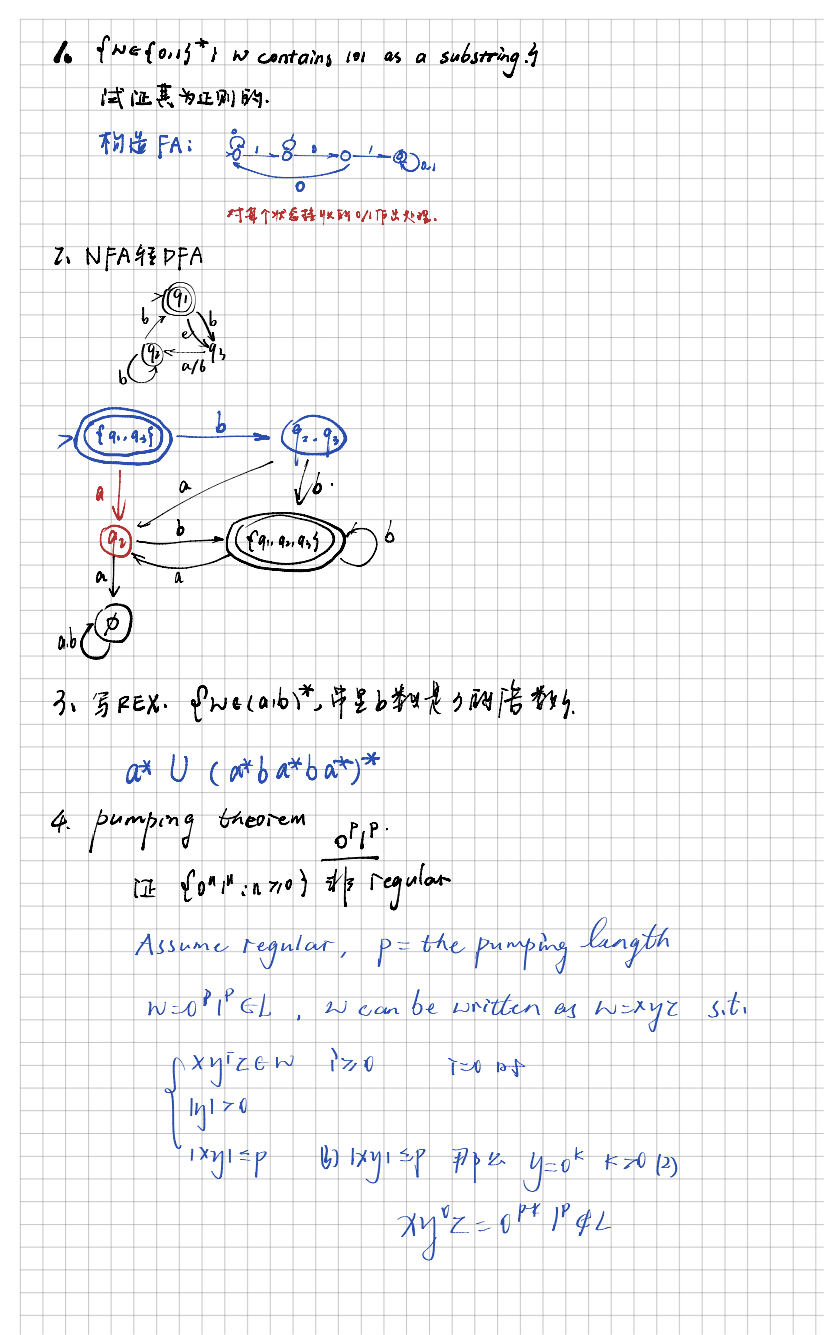 1. {w∈{0,1}*; w contains 101 as a substring.}
试证其为正则的.
构造FA:
0 1 1 0 1 0,1
0
对每个状态接收的0/1作出处理.
2、NFA转DFA
q1
b e b
q2 q3
b a/b
{q1,q3} b q2,q3
a a b.
q2 b {q1,q2,q3} b
a a
∅
a,b
3、写REX. {w∈(a,b)*, 串里b数是 的倍数}.
a* ∪ (a*ba*ba*)*
4. pumping theorem
0ᵖ1ᵖ.
证 {0ⁿ1ⁿ: n≥0} 非 regular
Assume regular, p= the pumping length
w=0ᵖ1ᵖ∈L , w can be written as w=xyz s.t.
xyⁱz∈w i≥0 i=0 时
|y|>0
|xy|≤p (3) |xy|≤p 那么 y=0ᵏ k>0 (2)
xy⁰z=0ᵖ⁻ᵏ1ᵖ∉L